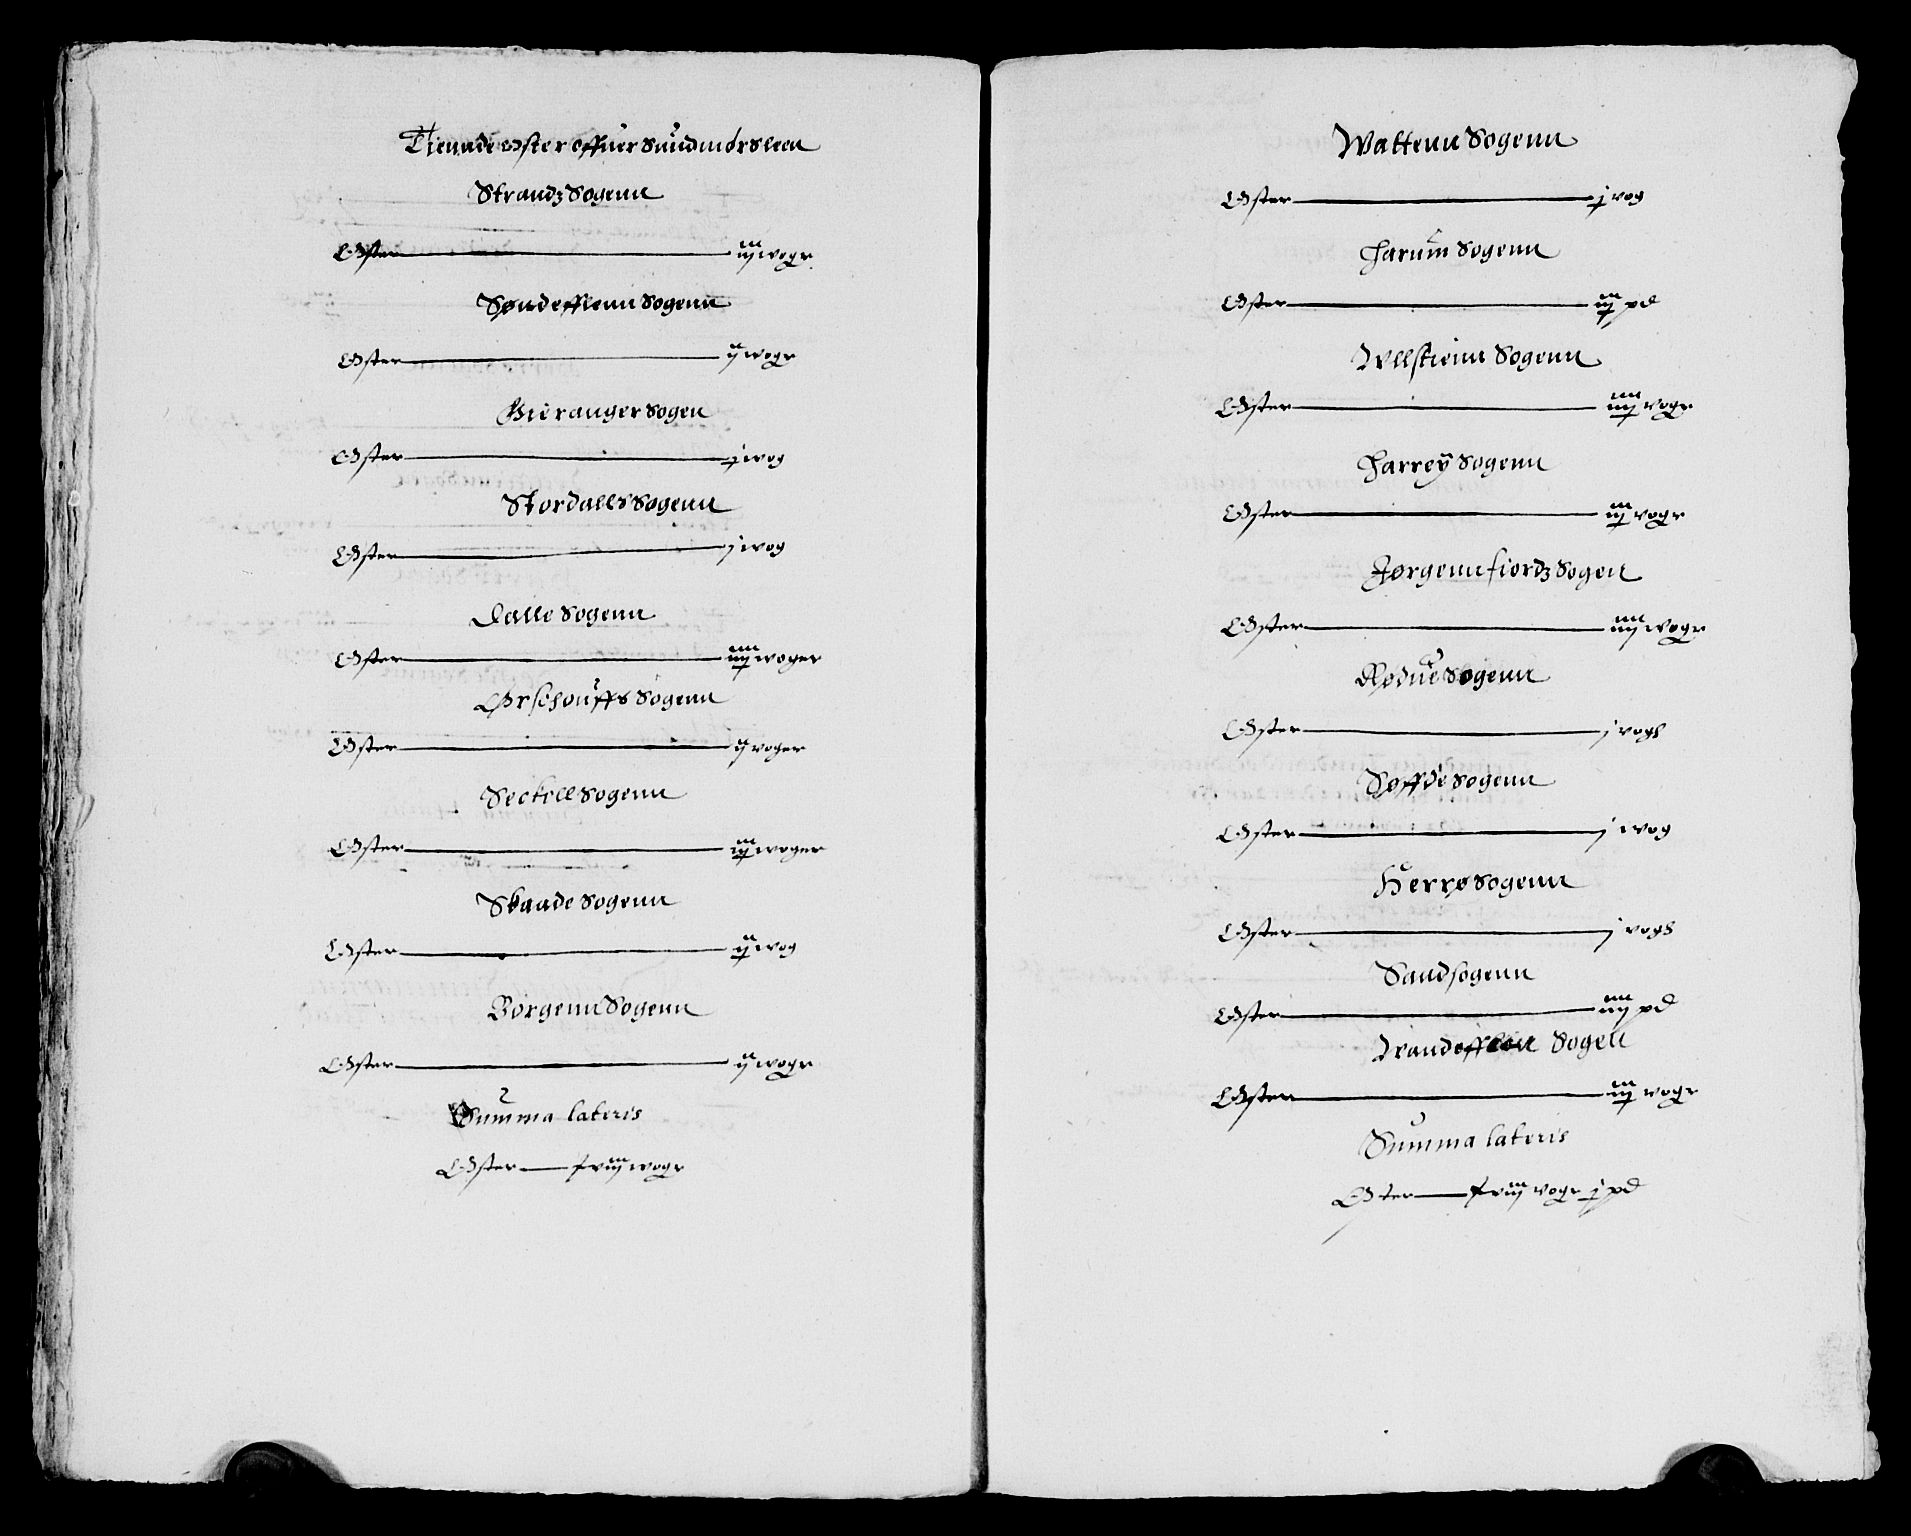 Tiende Oster offuer Sundmørs leen
Strandz Sogenn
Oster iij woger
Søndefflenn Sogenn
Oster ij woger
Gieranger Sogen
Oster j wog
Stordalls Sogenn
Oster j wog
Dalle Sogenn
Oster iiij woger
Ørschouffs Sogenn
Oster ij woger
Seckell Sogenn
Oster iij woger
Skaade Sogenn
Oster ij wog
Borgenn Sogenn
Oster ij woger
Summa lateris
Oster xviij woger
Wattenn Sogenn
Oster j vog
Harum Sogenn
Oster iij pd
Wllstienn Sogenn
Oster iiij voger
Harreÿ Sogenn
Oster iij voger
Jørgennfiordz Sogen
Oster iiij woger
Rødue Sogenn
Oster j vogh
Søffde Sogenn
Oster j wog
Herrø Sogenn
Oster j vogh
Sand sogenn
Oster iiij pd
Wandefflen Sogen
Oster iij voger
Summa lateris
Oster xviij voger j pd